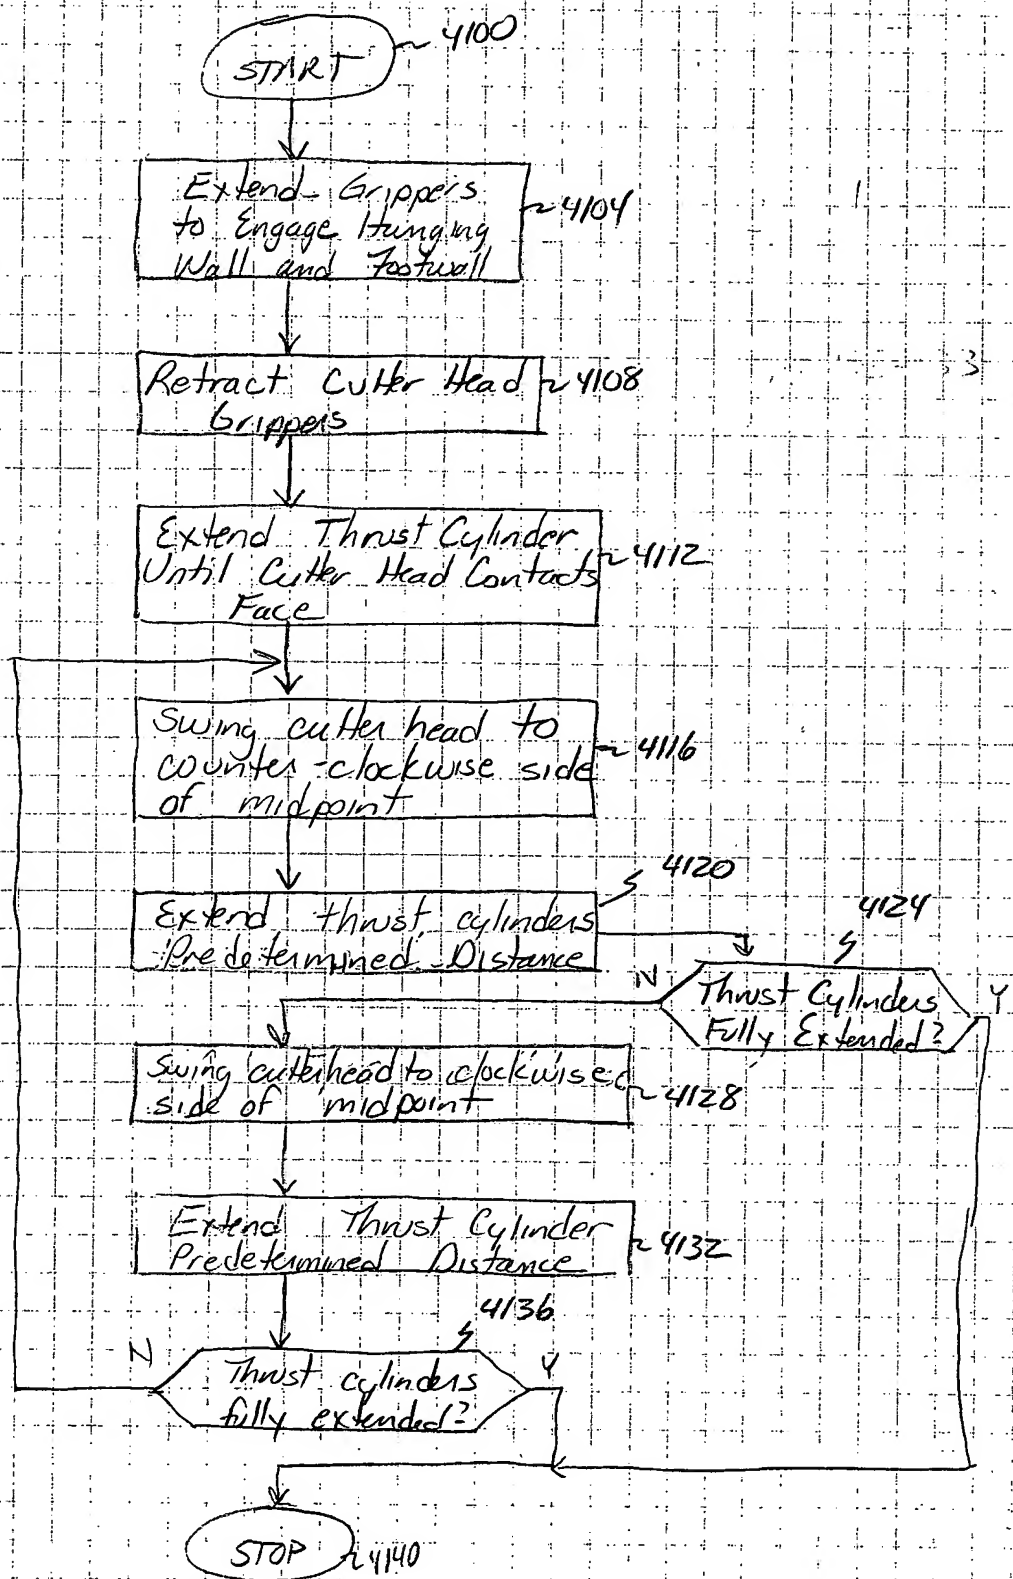 START 4100
Extend Grippers
to Engage Hanging
Wall and Footwall
4104
Retract Cutter Head
Grippers
4108
Extend Thrust Cylinder
Until Cutter Head Contacts
Face
4112
Swing cutter head to
counter-clockwise side
of midpoint
4116
Extend thrust cylinders
Predetermined Distance
4120
4124
Thrust Cylinders
Fully Extended?
N
Y
Swing cutterhead to clockwise
side of midpoint
4128
Extend Thrust Cylinder
Predetermined Distance
4132
4136
Thrust cylinders
fully extended?
N
Y
STOP 4140
3